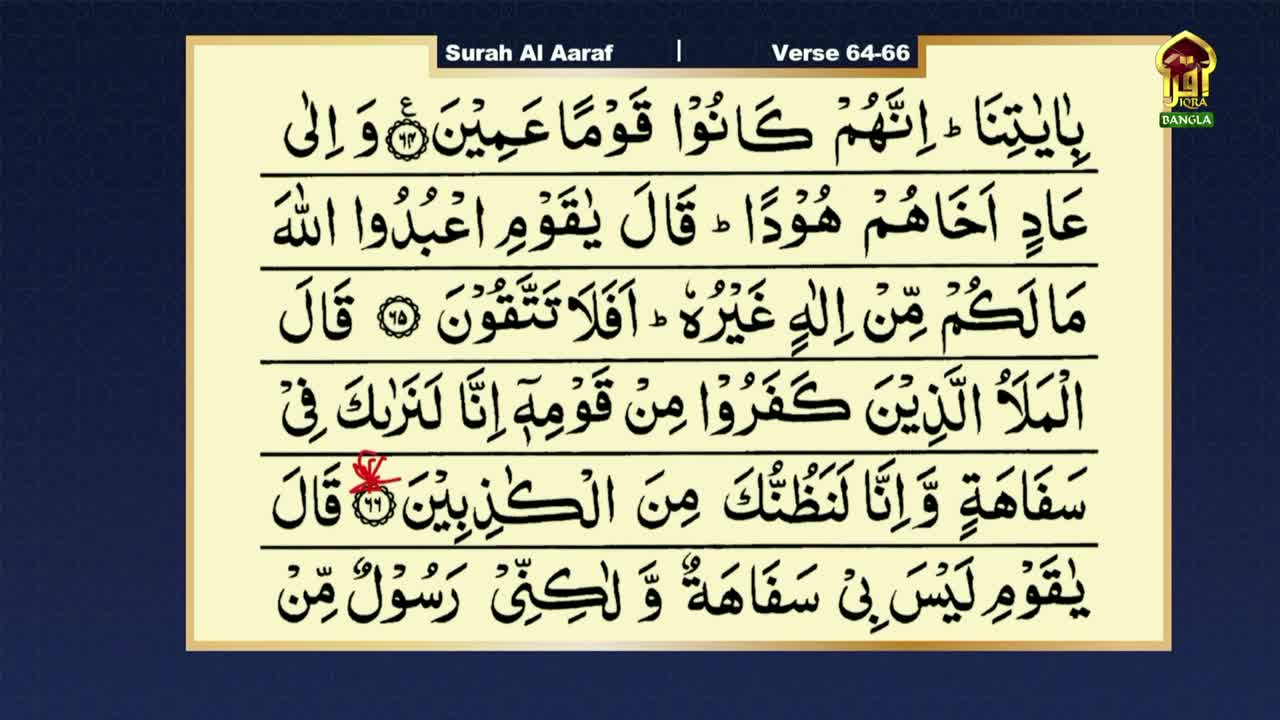 Surah Al Aaraf | Verse 64-66
اقرأ
IQRA
BANGLA
بِاٰيٰتِنَا ؕ اِنَّهُمْ كَانُوْا قَوْمًا عَمِيْنَ ﴿۶۴﴾ ع وَ اِلٰى
عَادٍ اَخَاهُمْ هُوْدًا ؕ قَالَ يٰقَوْمِ اعْبُدُوا اللّٰهَ
مَا لَكُمْ مِّنْ اِلٰهٍ غَيْرُهٗ ؕ اَفَلَا تَتَّقُوْنَ ﴿۶۵﴾ قَالَ
الْمَلَاُ الَّذِيْنَ كَفَرُوْا مِنْ قَوْمِهٖٓ اِنَّا لَنَرٰىكَ فِىْ
سَفَاهَةٍ وَّ اِنَّا لَنَظُنُّكَ مِنَ الْكٰذِبِيْنَ ﴿۶۶﴾ قَالَ
يٰقَوْمِ لَيْسَ بِىْ سَفَاهَةٌ وَّ لٰكِنِّىْ رَسُوْلٌ مِّنْ